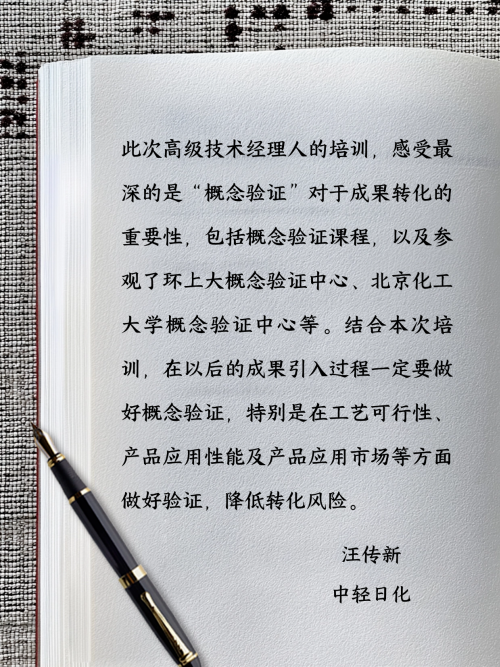 此次高级技术经理人的培训，感受最
深的是“概念验证”对于成果转化的
重要性，包括概念验证课程，以及参
观了环上大概念验证中心、北京化工
大学概念验证中心等。结合本次培
训，在以后的成果引入过程一定要做
好概念验证，特别是在工艺可行性、
产品应用性能及产品应用市场等方面
做好验证，降低转化风险。
汪传新
中轻日化